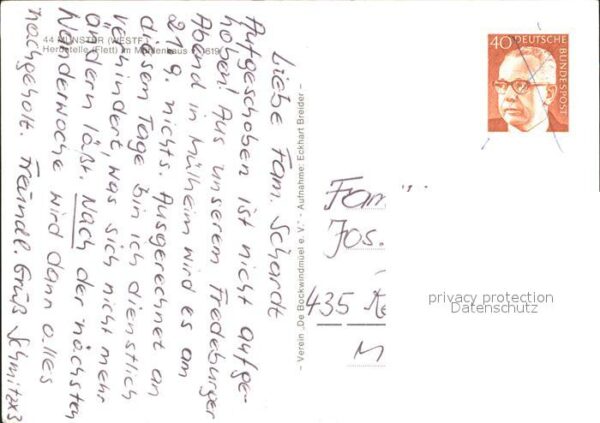 44 MÜNSTER (WESTF.)
Herdstelle (Flett) im Mühlenhaus 1619
Liebe Fam. Schardt
Aufgeschoben ist nicht aufge-
hoben! Aus unserem Fredeburger
Abend in Mülheim wird es am
21.9. nichts. Ausgerechnet an
diesen Tage bin ich dienstlich
verhindert, was sich nicht mehr
ändern läßt. Nach der nächsten
Wanderwoche wird dann alles
nachgeholt. Freundl. Gruß Schmitzx3
- Verein „De Bockwindmüel e. V.“ - Aufnahme: Eckhart Breider -
40
DEUTSCHE
BUNDESPOST
Fam
Jos.
435 Re
M
privacy protection
Datenschutz